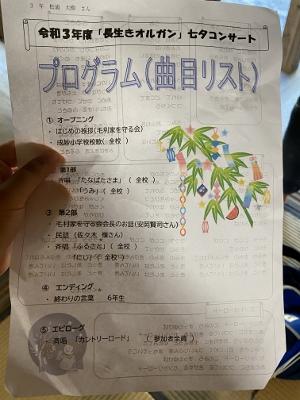 3年
令和3年度「長生きオルガン」七夕コンサート
プログラム(曲目リスト)
① オープニング
・はじめの挨拶(毛利家を守る会)
・成妙小学校校歌(全校)
② 第1部
・斉唱「たなばたさま」(全校)
「うみ」(全校)
③ 第2部
・毛村家を守る会会長のお話(安岡賢司さん)
・民話(佐々木 さん)
・斉唱「ふるさと」(全校)
「にじ」(全校)
④ エンディング
・終わりの言葉 6年生
⑤ エピローグ
・斉唱「カントリーロード」(参加者全員)